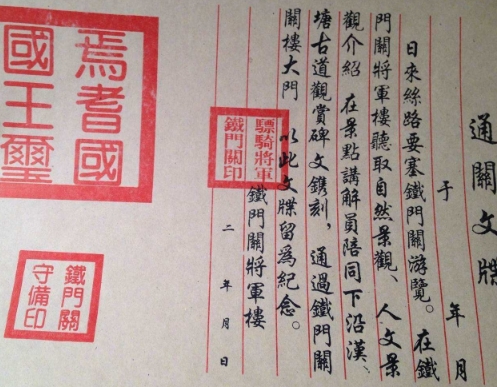 通關文牒
于 年 月
日來絲路要塞鐵門關游覽。在鐵
門關將軍樓聽取自然景觀、人文景
觀介紹 在景點講解員陪同下沿漢、
塘古道觀賞碑文鐫刻，通過鐵門關
關樓大門 以此文牒留爲紀念。
鐵門關將軍樓
二 年 月 日
驃騎將軍
鐵門關印
焉耆國
國王璽
鐵門關
守備印